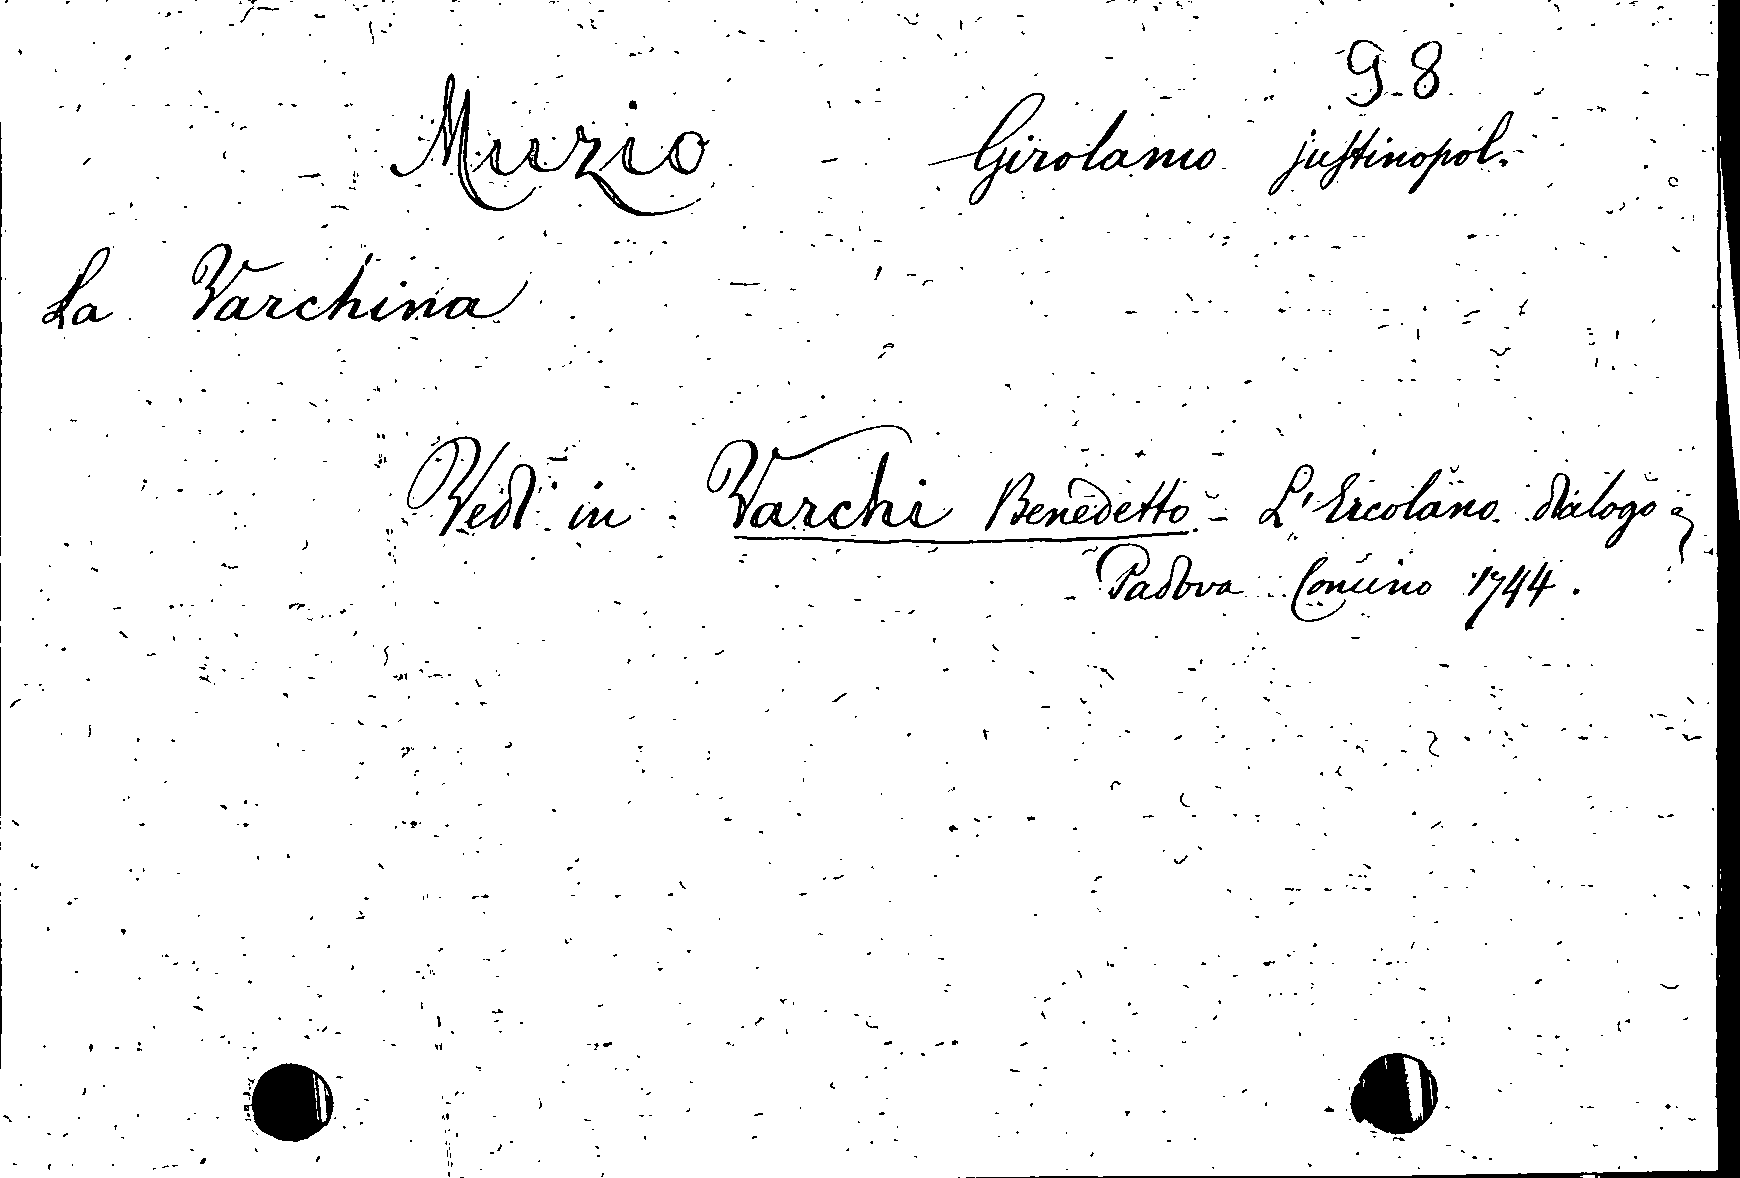 98
Muzio - Girolamo justinopol.
La Varchina
Vedi in Varchi Benedetto - L'Ercolano dialogo
Padova Comino 1744.